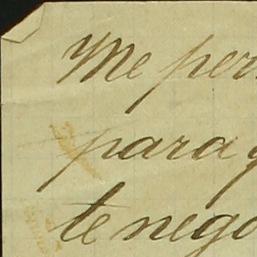 Me per
para q
te nego